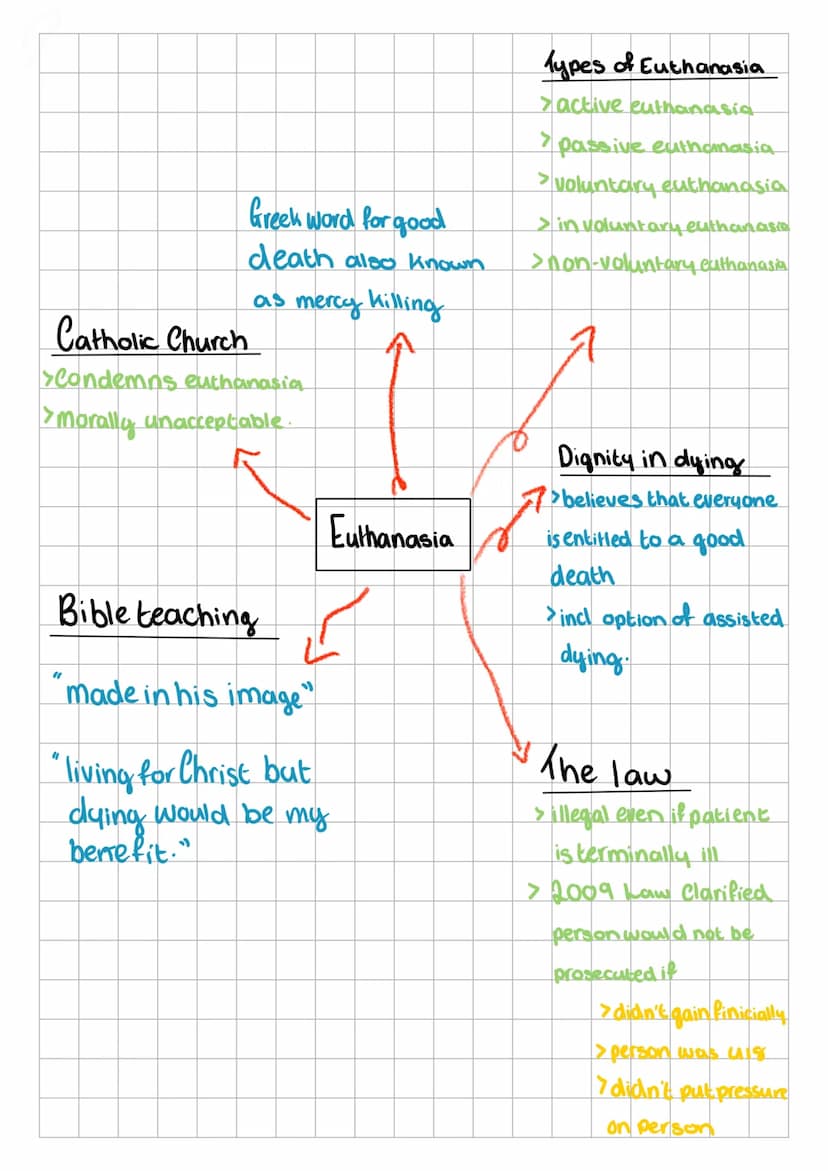 Types of Euthanasia
> active euthanasia
> passive euthanasia
> voluntary euthanasia
> involuntary euthanasia
> non-voluntary euthanasia
Greek word for good
death also known
as mercy killing
Catholic Church
> Condemns euthanasia
> morally unacceptable.
Euthanasia
Dignity in dying
> believes that everyone
is entitled to a good
death
> incl option of assisted
dying.
Bible teaching
"made in his image"
"living for Christ but
dying would be my
benefit."
The law
> illegal even if patient
is terminally ill
> 2009 Law Clarified
person would not be
prosecuted if
> didn't gain finicially
> person was
> didn't put pressure
on person